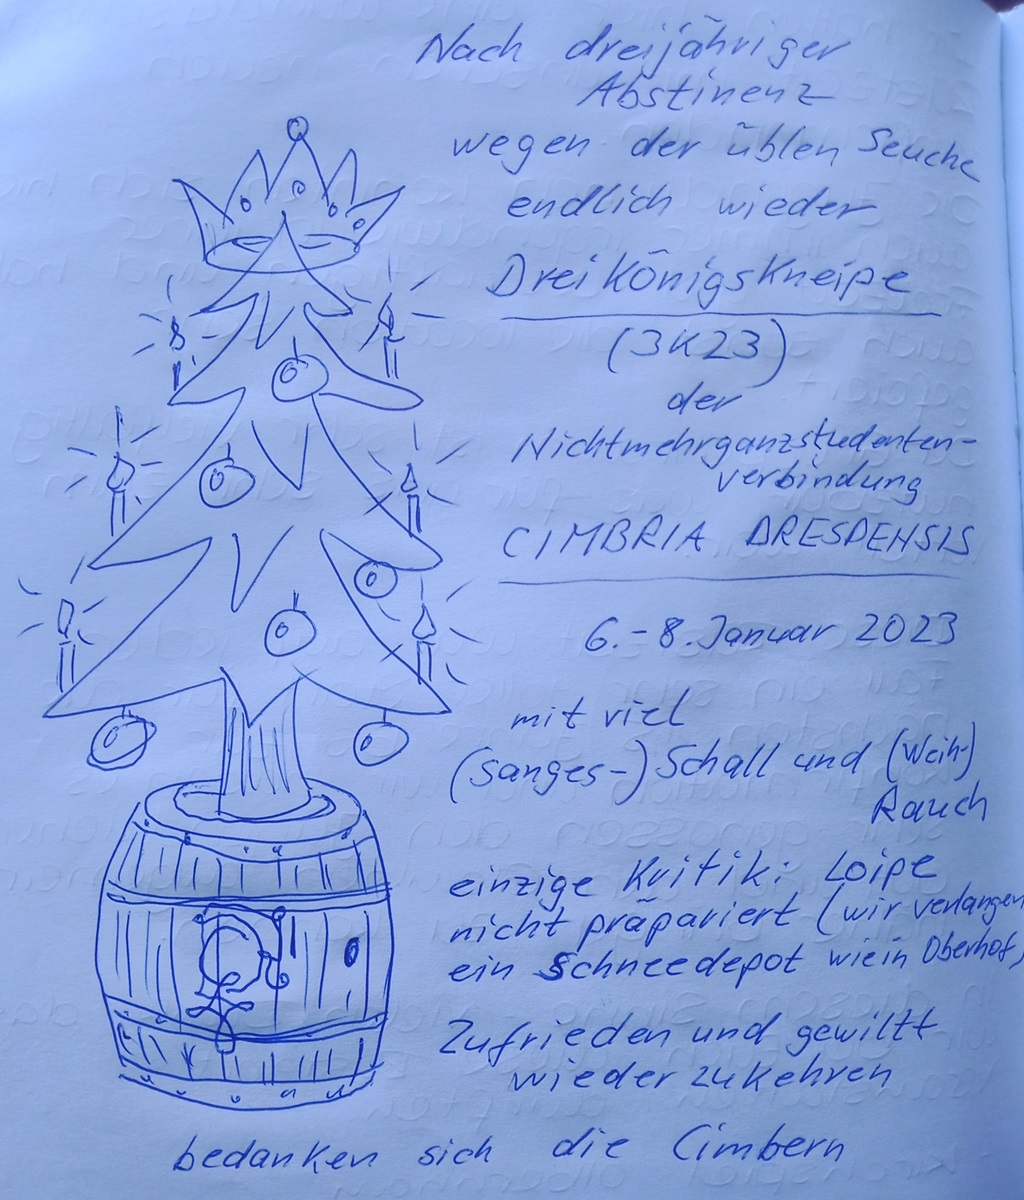 Nach dreijähriger
Abstinenz
wegen der üblen Seuche
endlich wieder
Dreikönigskneipe
(3K23)
der
Nichtmehrganzstudenten-
verbindung
CIMBRIA DRESDENSIS
6.-8. Januar 2023
mit viel
(sanges-) Schall und (Weih-)
Rauch
einzige Kritik: Loipe
nicht präpariert (wir verlangen
ein Schneedepot wie in Oberhof)
Zufrieden und gewillt
wiederzukehren
bedanken sich die Cimbern